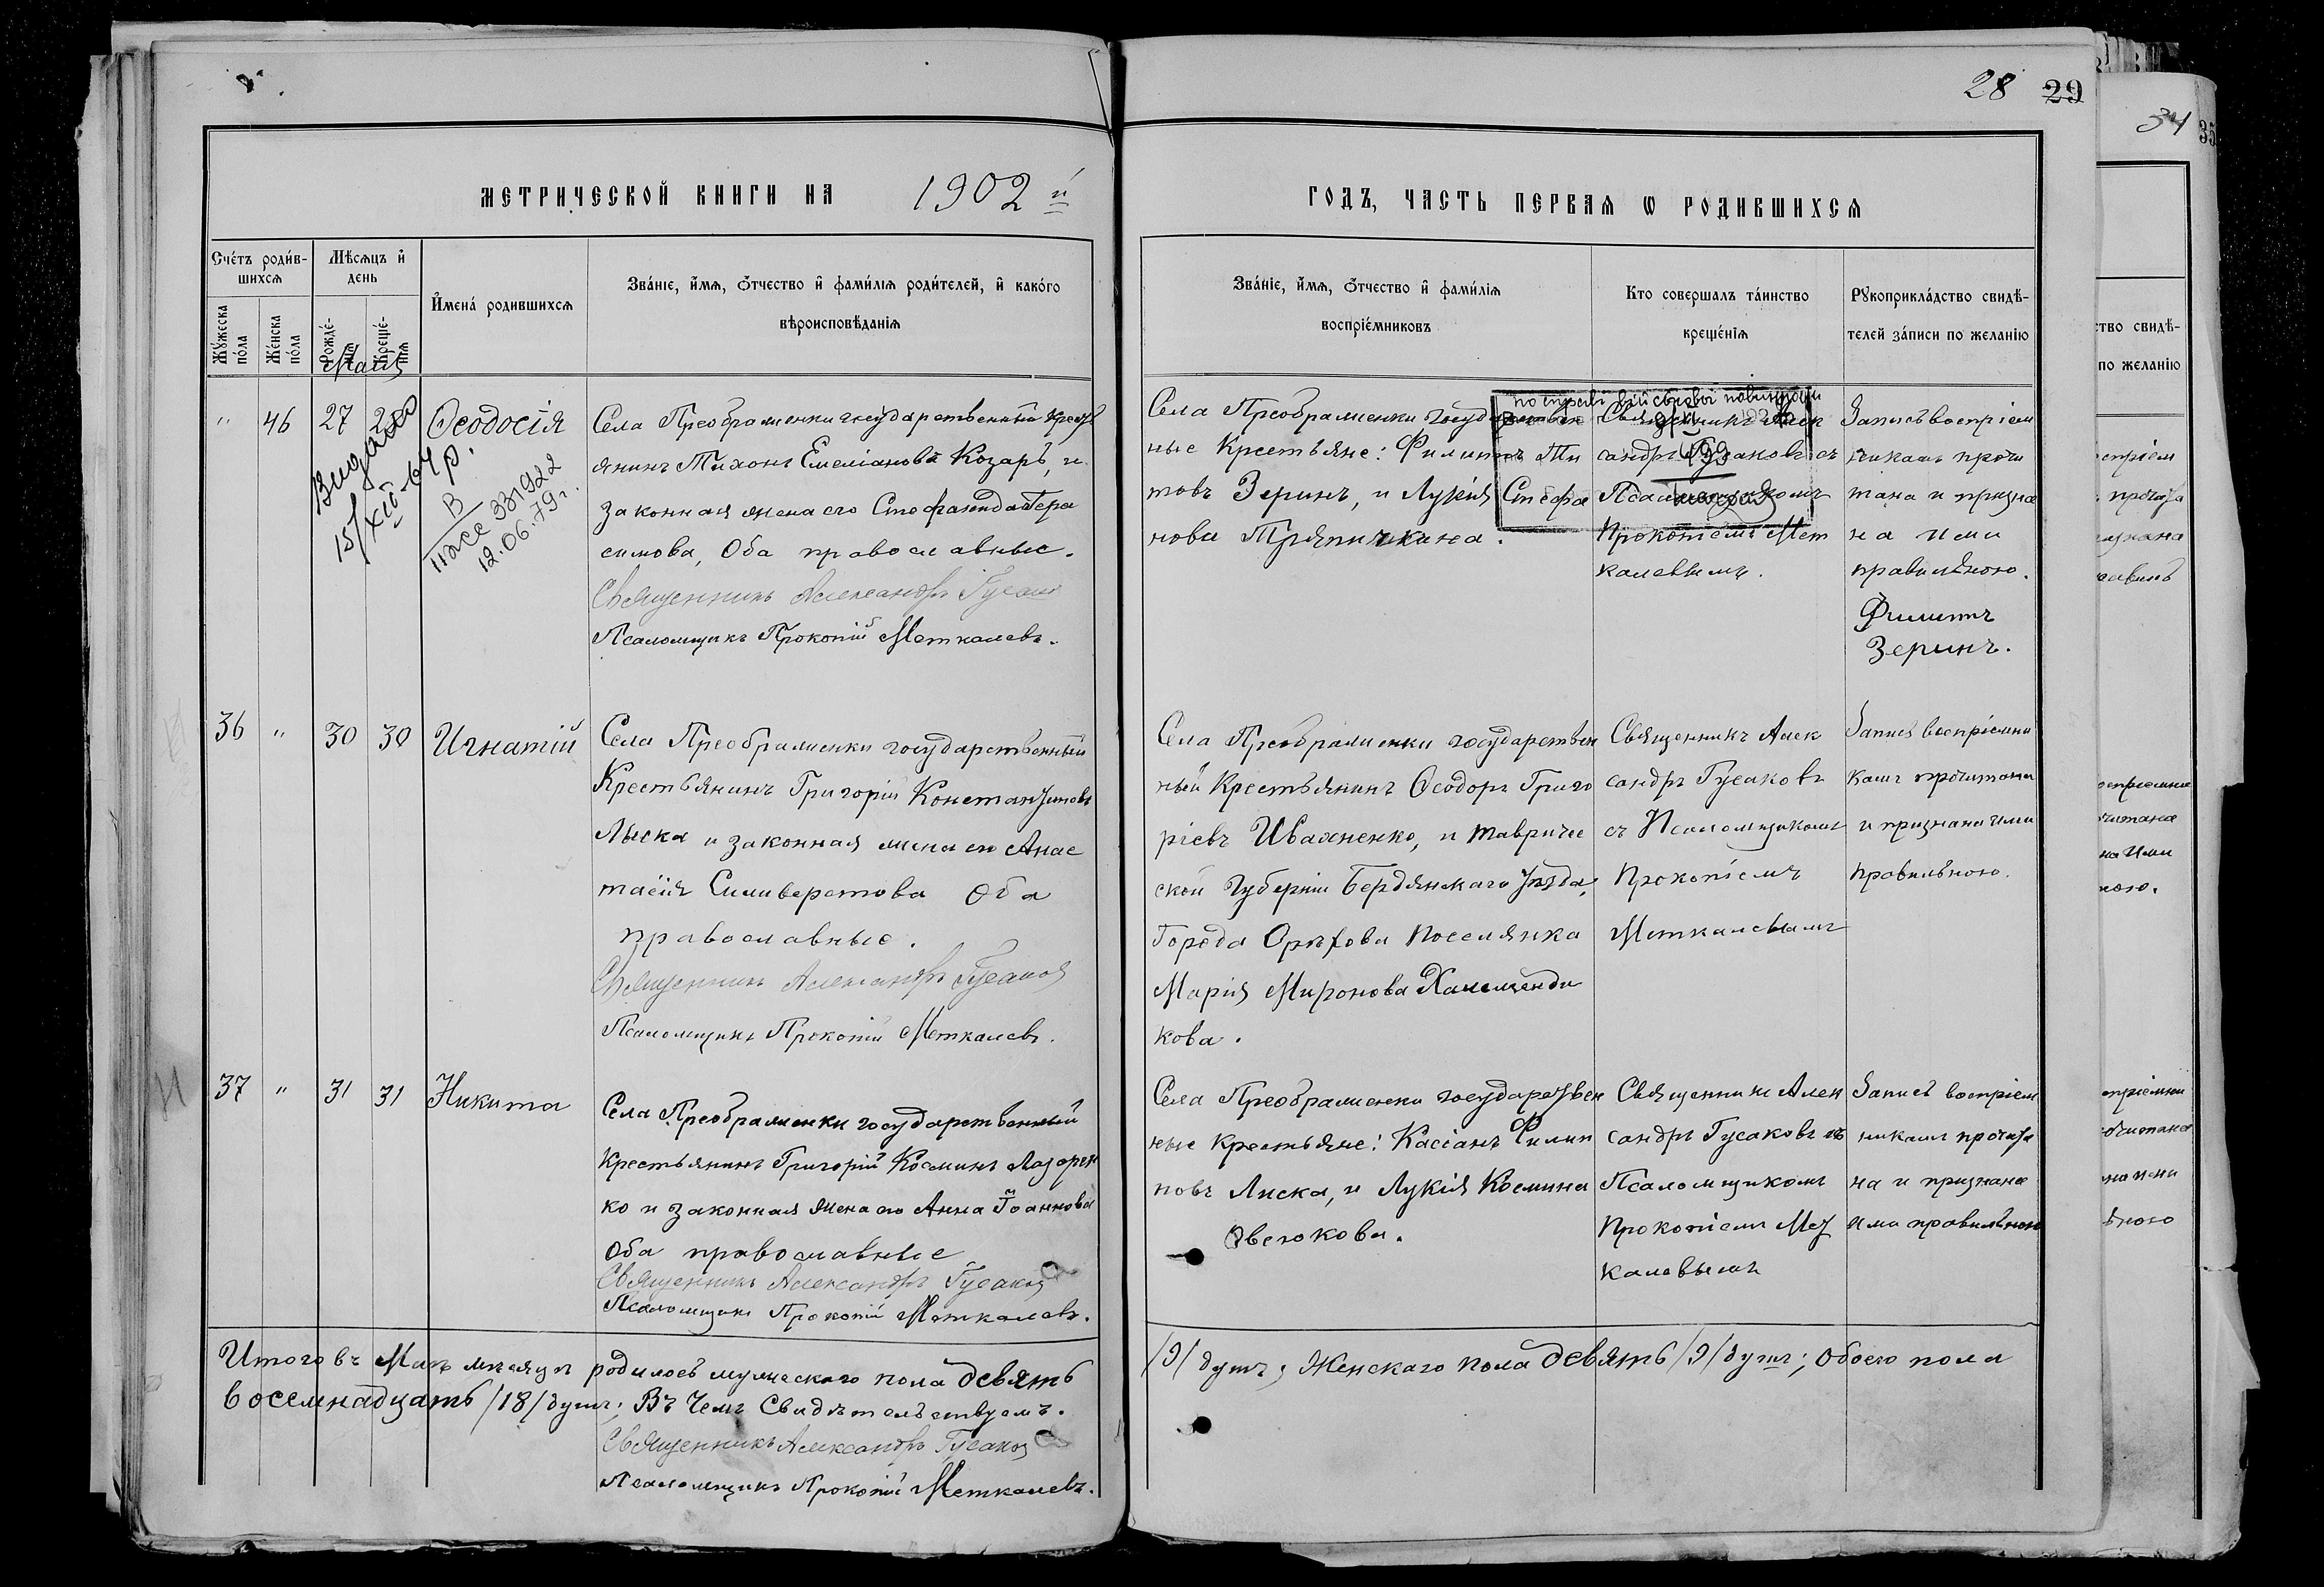 28 29
34
35
МЕТРИЧЕСКОЙ КНИГИ НА 1902 й
ГОДЪ, ЧАСТЬ ПЕРВАЯ Ѡ РОДИВШИХСѦ
Сче́тъ роди́в-
шихсѧ
Мѣсѧцъ и҆
день
И҆мена́ родившихсѧ
Зва́нїе, и҆́мѧ, ѻ҆́тчество и҆ фами́лїѧ роди́телей, и҆ како́гѡ
вѣроисповѣ́данїѧ
Мꙋ́жеска
по́ла
Же́нска
по́ла
Рожде́-
нїѧ
Креще́-
нїѧ
Зва́нїе, и҆́мѧ, ѻ҆́тчество и҆ фами́лїѧ
воспрїе́мниковъ
Кто совершалъ та́инство
креще́нїѧ
Рꙋкоприкла́дство свидѣ́-
телей за́писи по желанїю
Май
" 46 27 Ѳеодосія
Села Преображенки государственный Кресть
янинъ Тихонъ Емеліановъ Козаръ, и
законная жена его Стефанида Гера
симова, Оба православные.
Священникъ Александръ Гусаков
Псаломщикъ Прокопій Меткалевъ.
Видано
15/XII-64 р.
В
пасс 331922
12.06.79г.
Села Преображенки государствен
ные Крестьяне: Филиппъ Ти
товъ Зеринъ, и Лукія Стефа
нова Пряничкина.
Священникъ Алек
сандръ Гусаковъ съ
Псаломщикомъ
Прокопіемъ Мет
калевымъ.
Запись воспріем
никамъ прочи
тана и призна
на ими
правильною.
Филиппъ
Зеринъ.
36 " 30 30 Игнатій
Села Преображенки государственный
Крестьянинъ Григорій Константиновъ
Лыска и законная жена его Анас
тасія Силиверстова Оба
православные.
Священникъ Александръ Гусаков
Псаломщикъ Прокопій Меткалевъ.
Села Преображенки государствен
ный Крестьянинъ Ѳеодоръ Григо
ріевъ Ивахненко, и Тавриче
ской Губерніи Бердянскаго уѣзда,
Города Орѣхова Поселянка
Марія Миронова
кова.
Священникъ Алек
сандръ Гусаковъ
съ Псаломщикомъ
Прокопіемъ
Меткалевымъ
Запись воспріемни
камъ прочитана
и признана ими
правильною.
37 " 31 31 Никита
Села Преображенки государственный
Крестьянинъ Григорій Косминъ Лазарен
ко и законная жена его Анна Іоаннова
Оба православные
Священникъ Александръ Гусаков
Псаломщикъ Прокопій Меткалевъ.
Села Преображенки государствен
ные Крестьяне: Кассіанъ Филип
повъ Лиска, и Лукія Космина
Священникъ Алек
сандръ Гусаковъ съ
Псаломщикомъ
Прокопіемъ Мет
калевымъ
Запись воспріем
никамъ прочита
на и признана
ими правильною
Итого въ Маѣ мѣсяцѣ родилось мужескаго пола девять
/9/ душъ; Женскаго пола девять /9/ душъ; Обоего пола
восемнадцать /18/ душъ; Въ чемъ Свидѣтельствуемъ.
Священникъ Александръ Гусаков
Псаломщикъ Прокопій Меткалевъ.